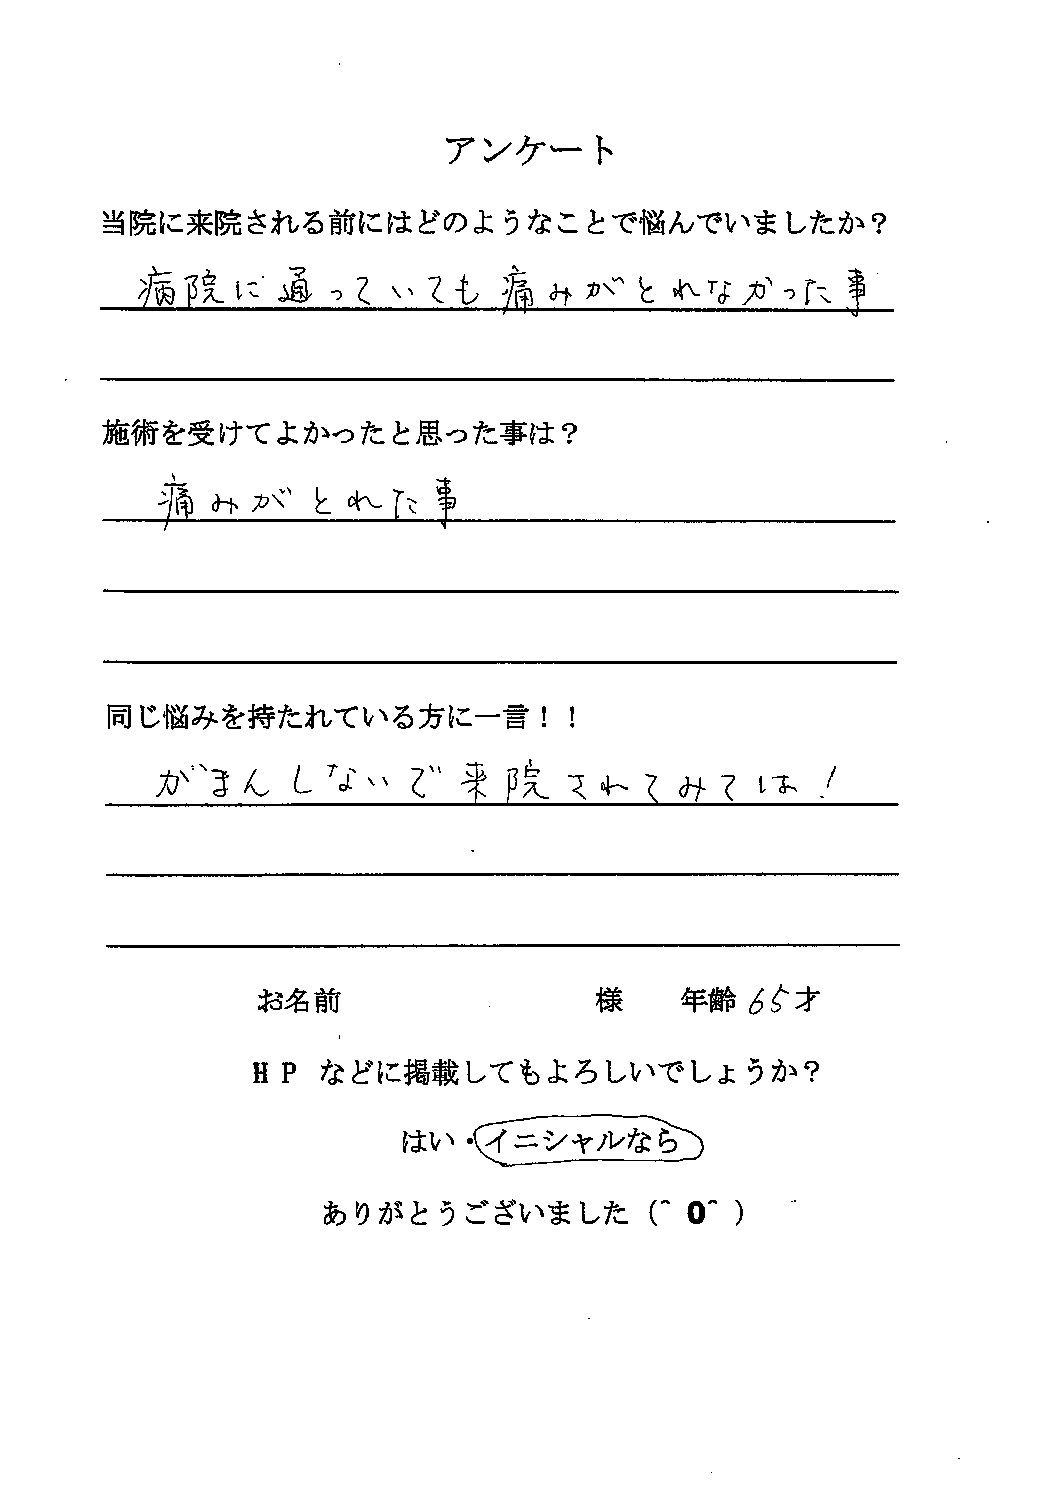 アンケート
当院に来院される前にはどのようなことで悩んでいましたか？
病院に通っていても痛みがとれなかった事
施術を受けてよかったと思った事は？
痛みがとれた事
同じ悩みを持たれている方に一言！！
がまんしないで来院されてみては！
お名前 様 年齢 65才
ＨＰ などに掲載してもよろしいでしょうか？
はい・イニシャルなら
ありがとうございました（＾0＾）